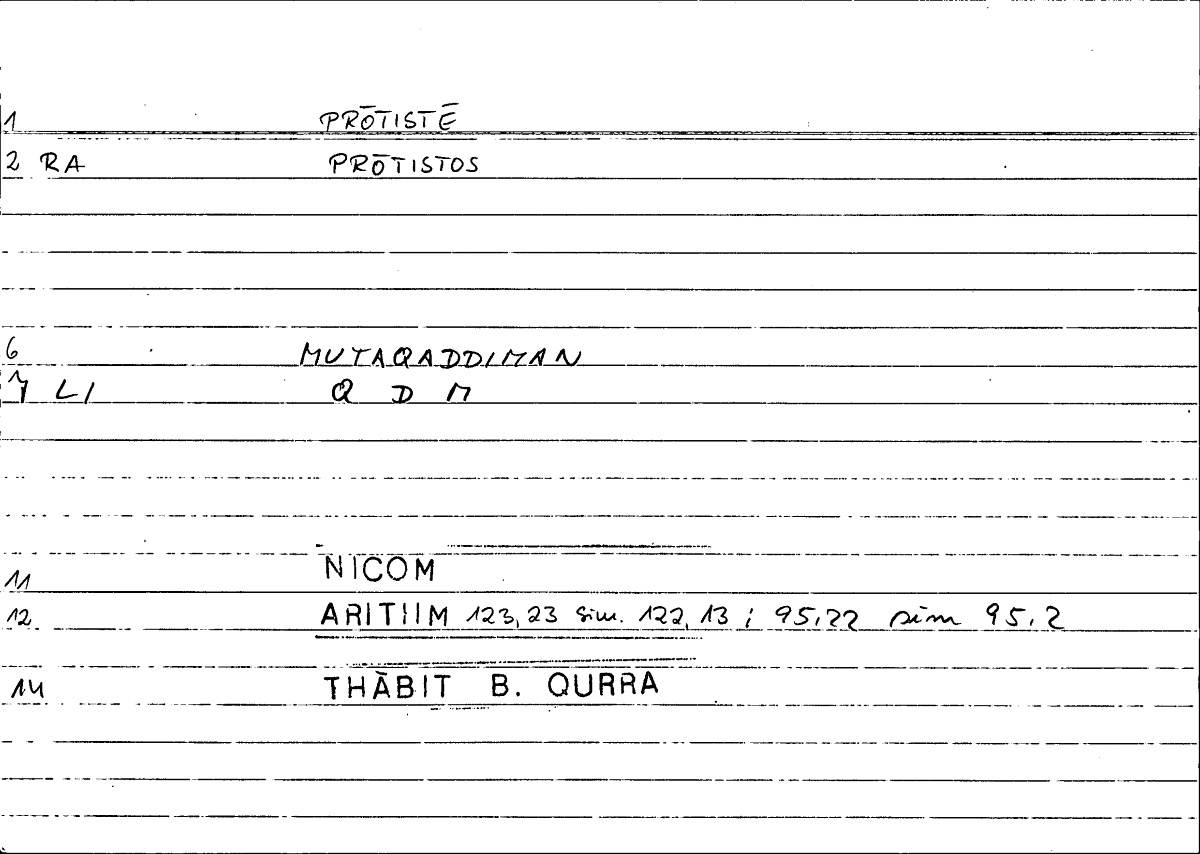 1 PRŌTISTĒ
2 RA PRŌTISTOS
6 MUTAQADDIMAN
7 LI Q D M
11 NICOM
12 ARITIIM 123,23 sim. 122,13 ; 95,22 sim 95,2
14 THĀBIT B. QURRA